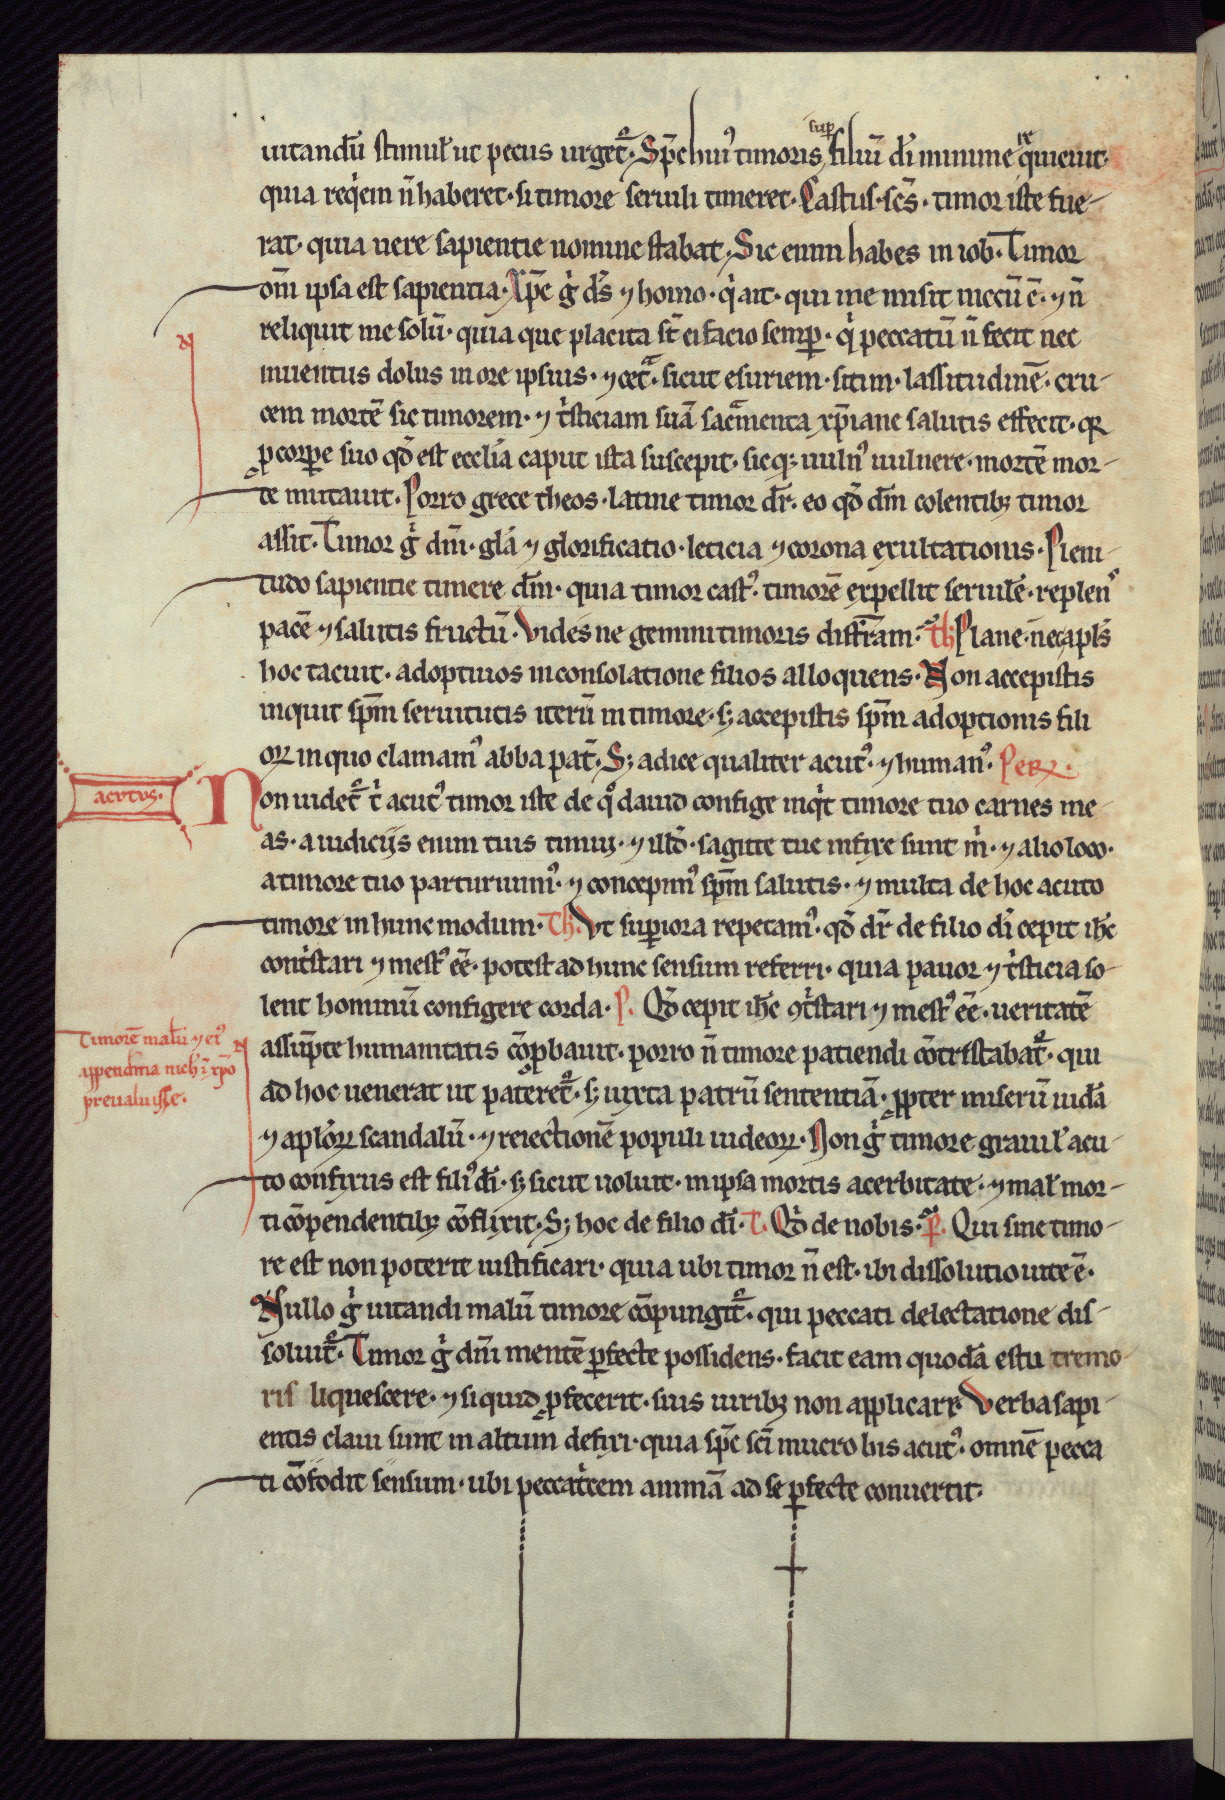 uitandū stimul' ut pecus urget᷑. Sp̄c hui᷒ timoris sup̱ filiū dī minime reqͥeuit.
quia reqͥem n̄ haberet. si timore seruili timeret. Castus. scs̄. timor iste fue-
rat. quia uere sapientie nomine stabat. Sic enim habes in iob. Timor
dm̄ ipsa est sapientia. Xpc̄ gͦ ds̄ ⁊ homo. qͥ ait. qui me misit mecū ē. ⁊ n̄
reliquit me solū. quia que placita st̄ ei facio semp̱. qͥ peccatū n̄ fecit nec
inuentus dolus in ore ipsius. ⁊ cetͣ. sicut esuriem. sitim. lassitudinē. cru-
cem mortē sic timorem. ⁊ tͥsticiam suā sacͣmenta xp̄iane salutis effecit. qꝛ
ꝓ corꝑe suo qd̄ est eccl̄ia caput ista suscepit. sicq; uuln᷒ uulnere. mortē mor-
te mutauit. Porro grece theos. latine timor dr̄. eo qd̄ dm̄ colentib; timor
assit. Timor gͦ dm̄i. gl̄a ⁊ glorificatio. leticia ⁊ corona exultationis. Pleni-
tudo sapientie timere dm̄. quia timor cast᷒. timorē expellit seruilē. replen᷒
pacē ⁊ salutis fructū. Vides ne gemini timoris diffr̄am. Th. Plane. nec apl̄s
hoc tacuit. adoptiuos in consolatione filios alloquens. Non accepistis
inquit sp̄m seruitutis iterū in timore. s; accepistis sp̄m adoptionis fili
oꝝ in quo clamam᷒ abba pat̄. S; adice qualiter acut᷒. ⁊ human᷒. Per.
acutus.
Non uidet᷑ tͥ acut᷒ timor iste de qͦ dauid confige inqͥt timore tuo carnes me-
as. a iudiciis enim tuis timui. ⁊ illd̄. sagitte tue infixe sunt mͥ. ⁊ alio loco.
a timore tuo parturiuim᷒. ⁊ concepim᷒ sp̄m salutis. ⁊ multa de hoc acuto
timore in hunc modum. Th. Vt suꝑiora repetam᷒. qd̄ dr̄ de filio dī cepit ihc̄
contͥstari ⁊ mest᷒ eē. potest ad hunc sensum referri. quia pauor ⁊ tͥsticia so-
lent hominū configere corda. P. Qd̄ cepit ihc̄ ꝯtͥstari ⁊ mest᷒ eē. ueritatē
Timorē mali ⁊ ei᷒
appendicia nich̄ ī xp̄o
preualuisse.
assūpte humanitatis cōꝓbauit. porro n̄ timore patiendi cōtristabat᷑. qui
ad hoc uenerat ut pateret᷑. s; iuxta patrū sententiā. ꝓpter miserū iudā
⁊ apl̄oꝝ scandalū. ⁊ reiectionē populi iudeoꝝ. Non gͦ timore grauit' acu-
to confixus est fili᷒ dī. s; sicut uoluit. in ipsa mortis acerbitate. ⁊ mal' mor-
ti cōpendentib; cōflixit. S; hoc de filio dī. T. Qd̄ de nobis. P. Qui sine timo-
re est non poterit iustificari. quia ubi timor n̄ est. ibi dissolutio uite ē.
Nullo gͦ uitandi malū timore cōpungit᷑. qui peccati delectatione dis-
soluit᷑. Timor gͦ dm̄i mentē ꝑfecte possidens. facit eam quodā estu tremo-
ris liquescere. ⁊ si quid ꝓfecerit. suis uirib; non applicare. Verba sapi-
entis claui sunt in altum defixi. quia sp̄c sc̄i mucro bis acut᷒. omnē pecca
ti cōfodit sensum. ubi peccatͥcem animā ad se ꝑfecte conuertit.